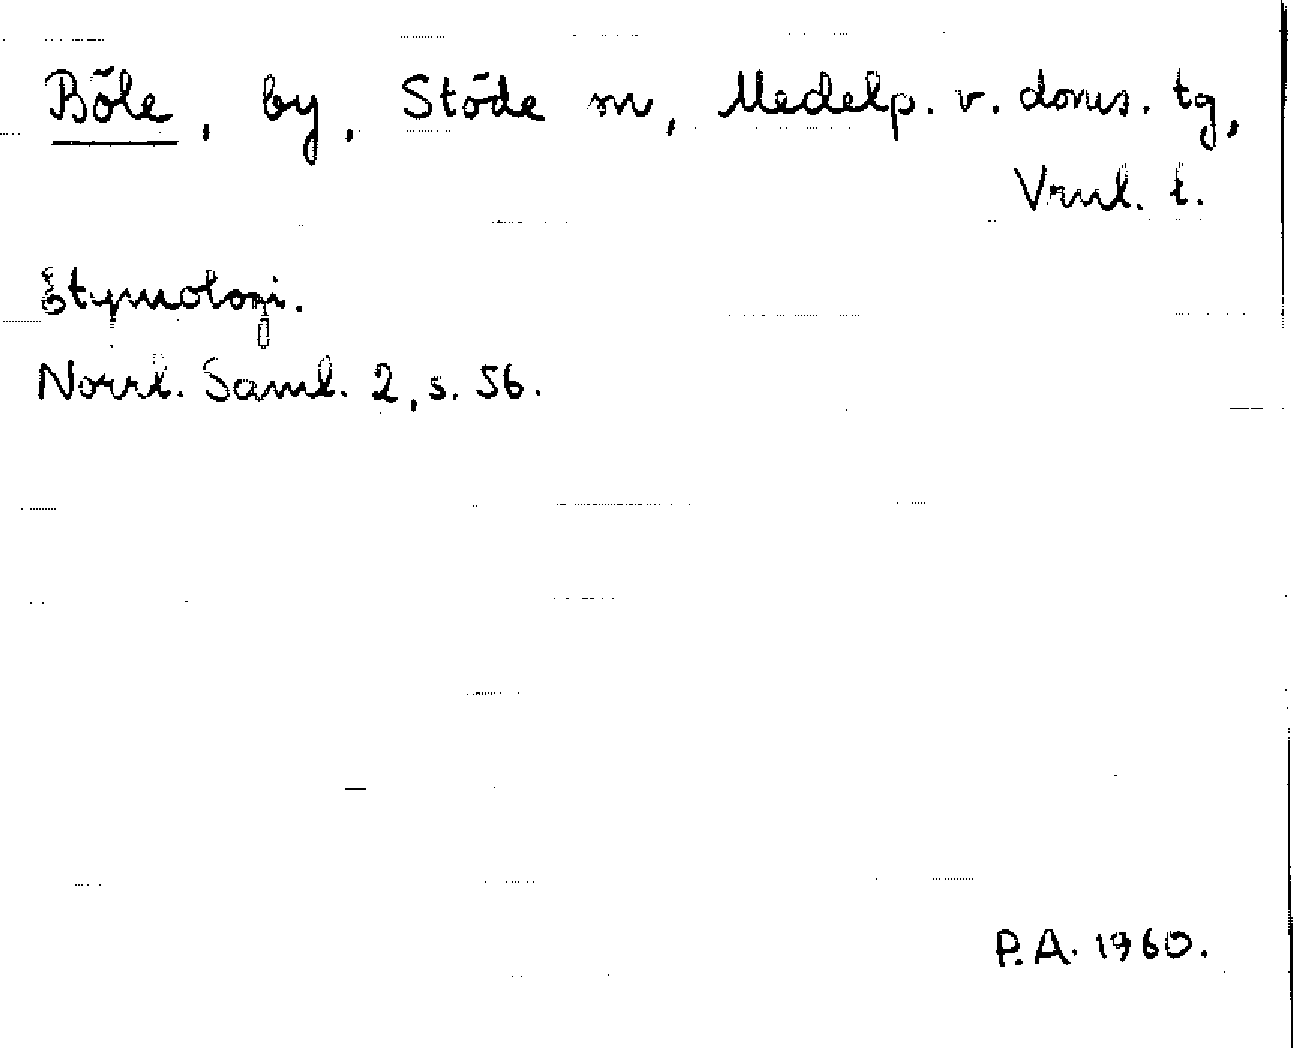 Böle, by, Stöde sn, Medelp. v. doms. tg,
Vrnl. t.
Etymologi.
Norrl. Saml. 2, s. 56.
P.A. 1960.